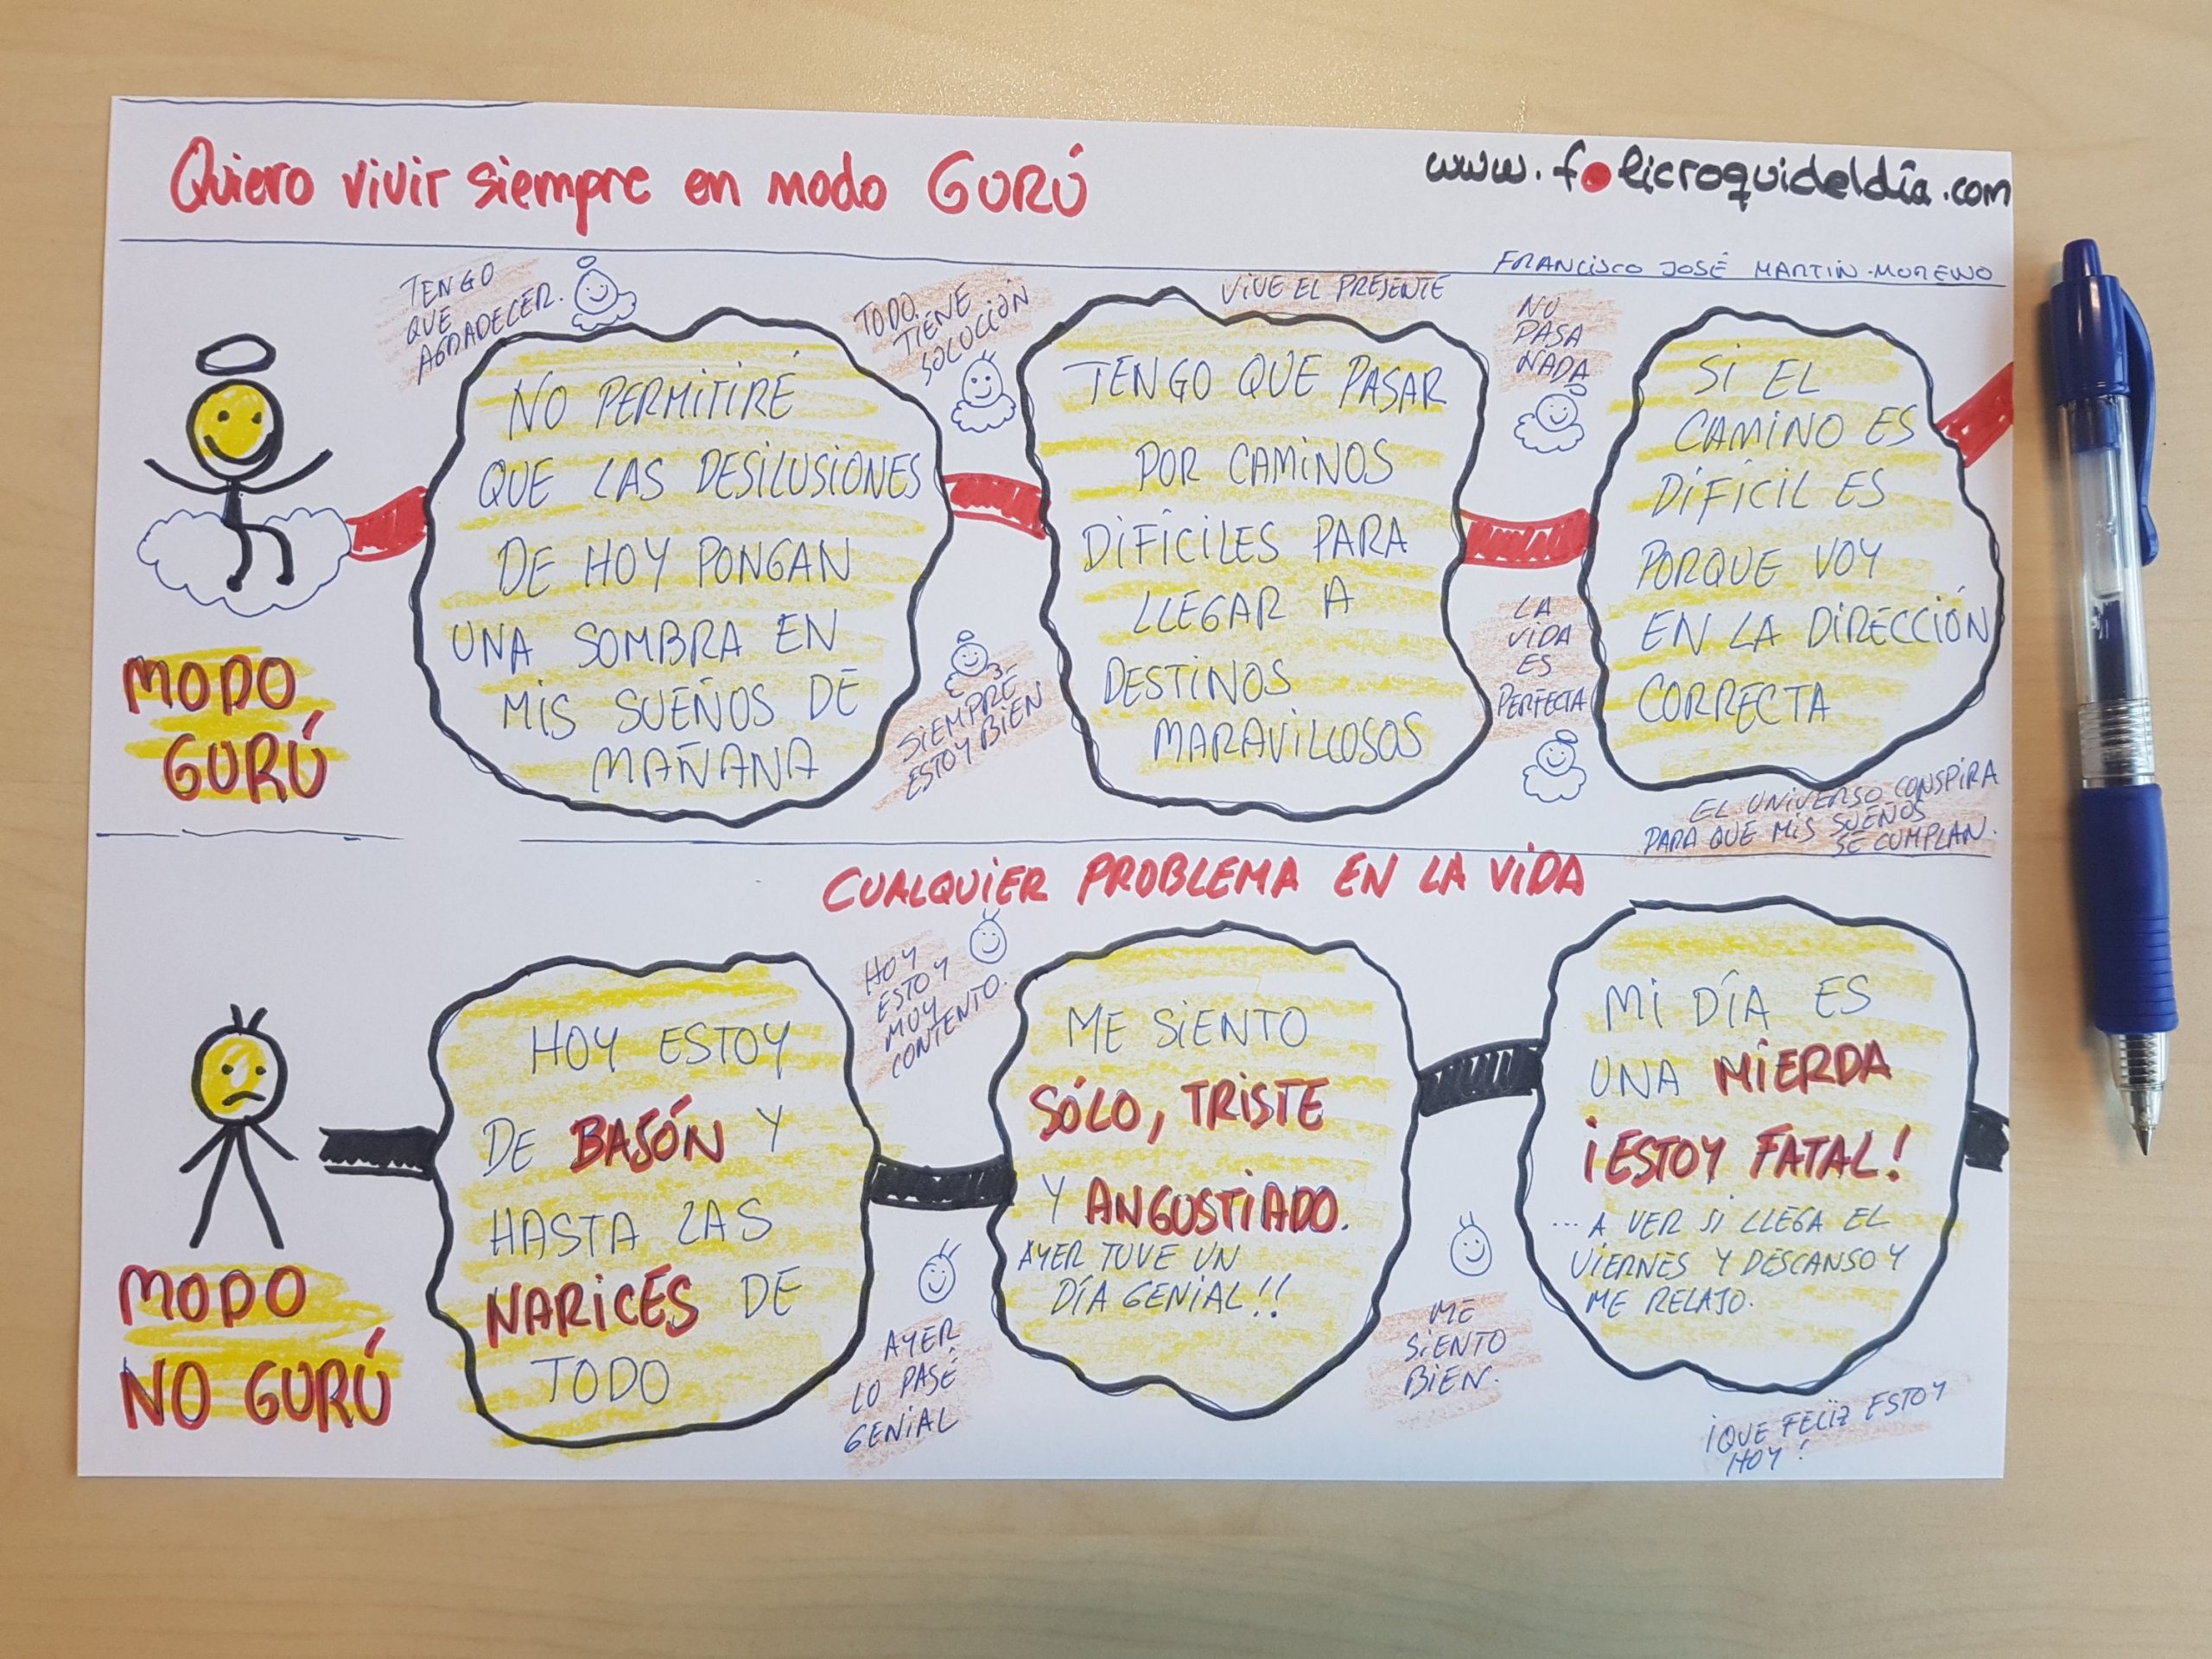 Quiero vivir siempre en modo GURÚ
www.folicroquideldía.com
FRANCISCO JOSÉ MARTÍN-MORENO
TENGO
QUE
AGRADECER.
TODO
TIENE
SOLUCIÓN
VIVE EL PRESENTE
NO
PASA
NADA
NO PERMITIRÉ
QUE LAS DESILUSIONES
DE HOY PONGAN
UNA SOMBRA EN
MIS SUEÑOS DE
MAÑANA
TENGO QUE PASAR
POR CAMINOS
DIFÍCILES PARA
LLEGAR A
DESTINOS
MARAVILLOSOS
SI EL
CAMINO ES
DIFÍCIL ES
PORQUE VOY
EN LA DIRECCIÓN
CORRECTA
MODO
GURÚ
SIEMPRE
ESTOY BIEN
LA
VIDA
ES
PERFECTA
EL UNIVERSO CONSPIRA
PARA QUE MIS SUEÑOS
SE CUMPLAN.
CUALQUIER PROBLEMA EN LA VIDA
HOY
ESTOY
MUY
CONTENTO.
HOY ESTOY
DE BAJÓN Y
HASTA LAS
NARICES DE
TODO
ME SIENTO
SÓLO, TRISTE
Y ANGUSTIADO.
AYER TUVE UN
DÍA GENIAL!!
MI DÍA ES
UNA MIERDA
¡ESTOY FATAL!
... A VER SI LLEGA EL
VIERNES Y DESCANSO Y
ME RELAJO.
MODO
NO GURÚ
AYER
LO PASÉ
GENIAL
ME
SIENTO
BIEN.
¡QUE FELIZ ESTOY
HOY!